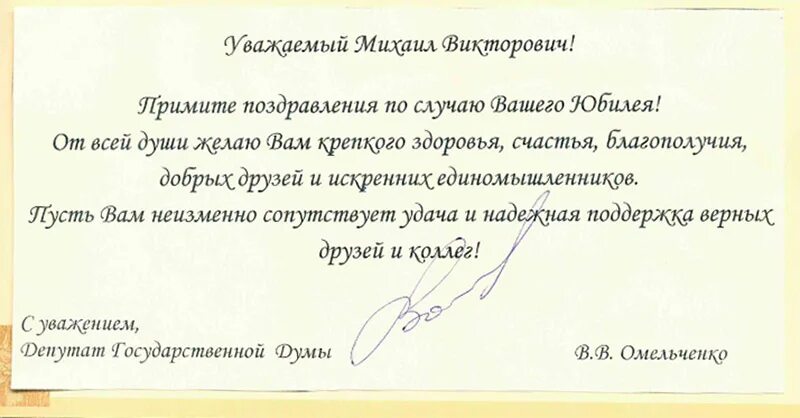 Уважаемый Михаил Викторович!
Примите поздравления по случаю Вашего Юбилея!
От всей души желаю Вам крепкого здоровья, счастья, благополучия,
добрых друзей и искренних единомышленников.
Пусть Вам неизменно сопутствует удача и надежная поддержка верных
друзей и коллег!
С уважением,
Депутат Государственной Думы
В.В. Омельченко